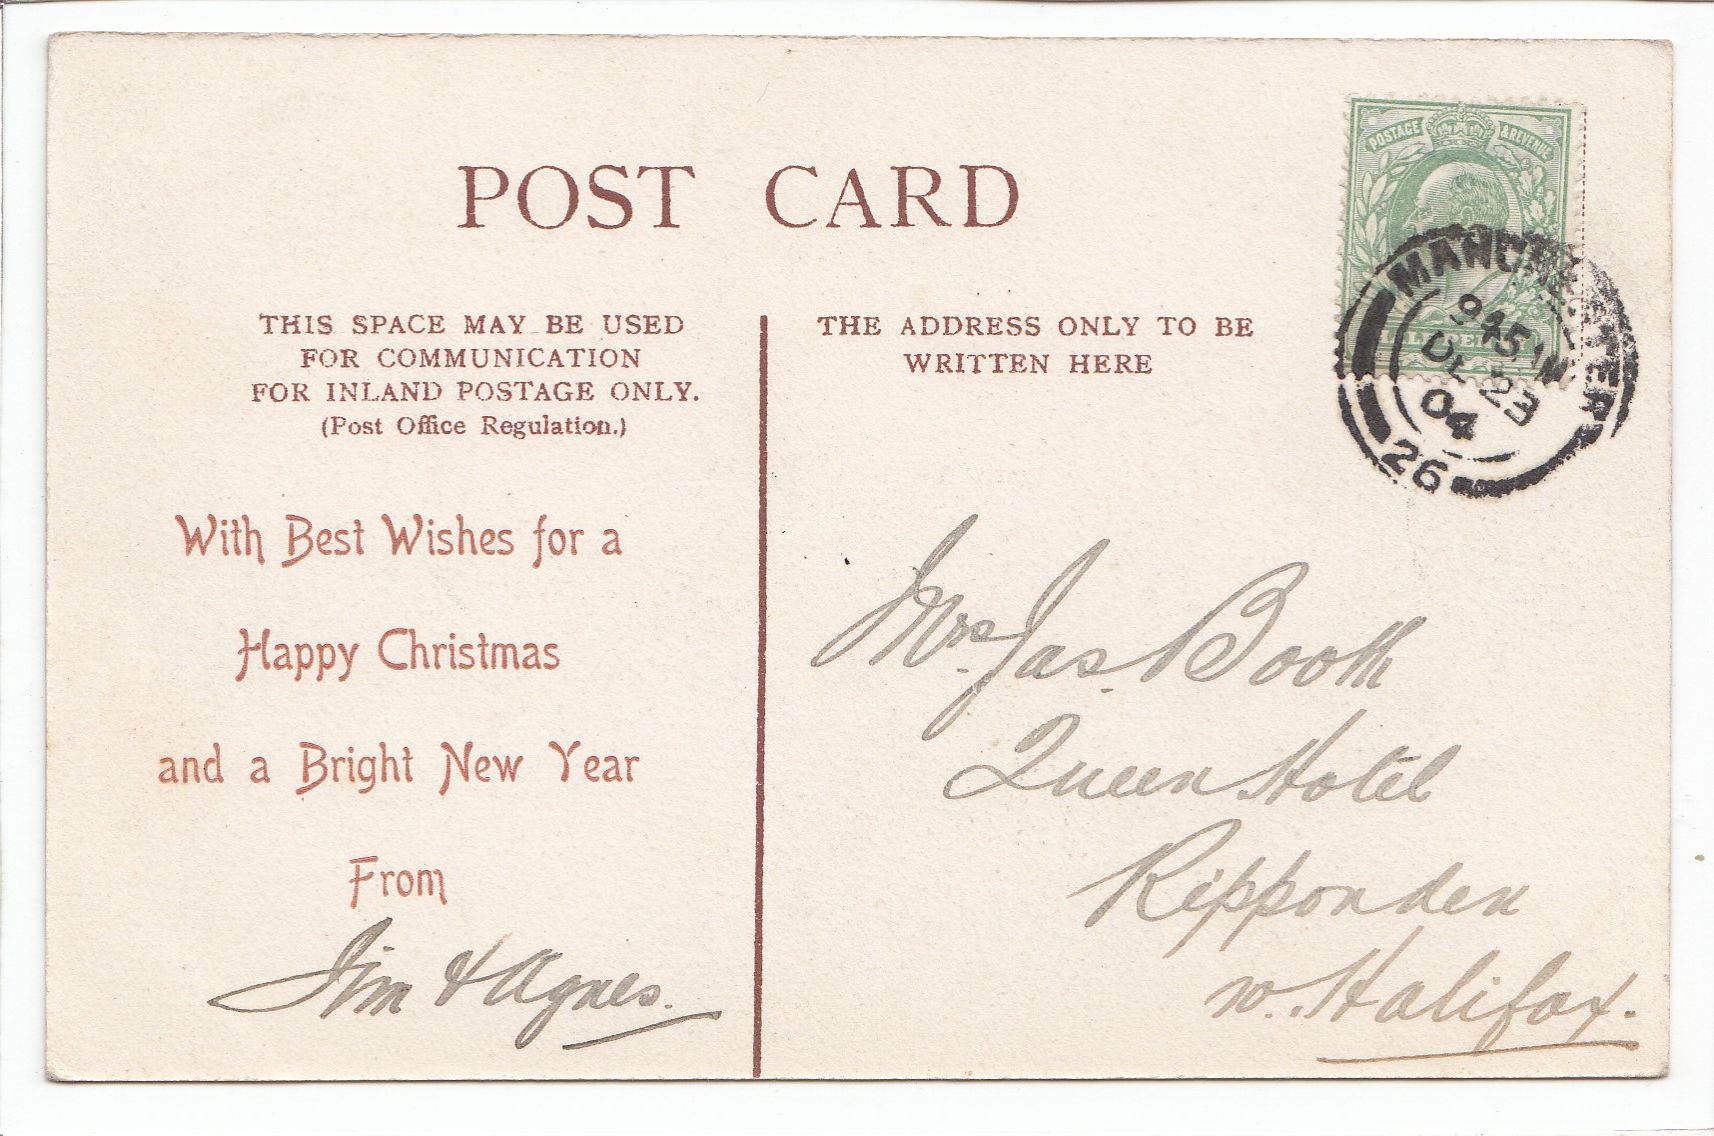 POST CARD
POSTAGE & REVENUE
MANCHESTER
9 45 AM
DE 23
04
26
THIS SPACE MAY BE USED
FOR COMMUNICATION
FOR INLAND POSTAGE ONLY.
(Post Office Regulation.)
With Best Wishes for a
Happy Christmas
and a Bright New Year
From
Jim & Agnes.
THE ADDRESS ONLY TO BE
WRITTEN HERE
Mrs. Jas. Booth
Queen Hotel
Ripponden
nr. Halifax.